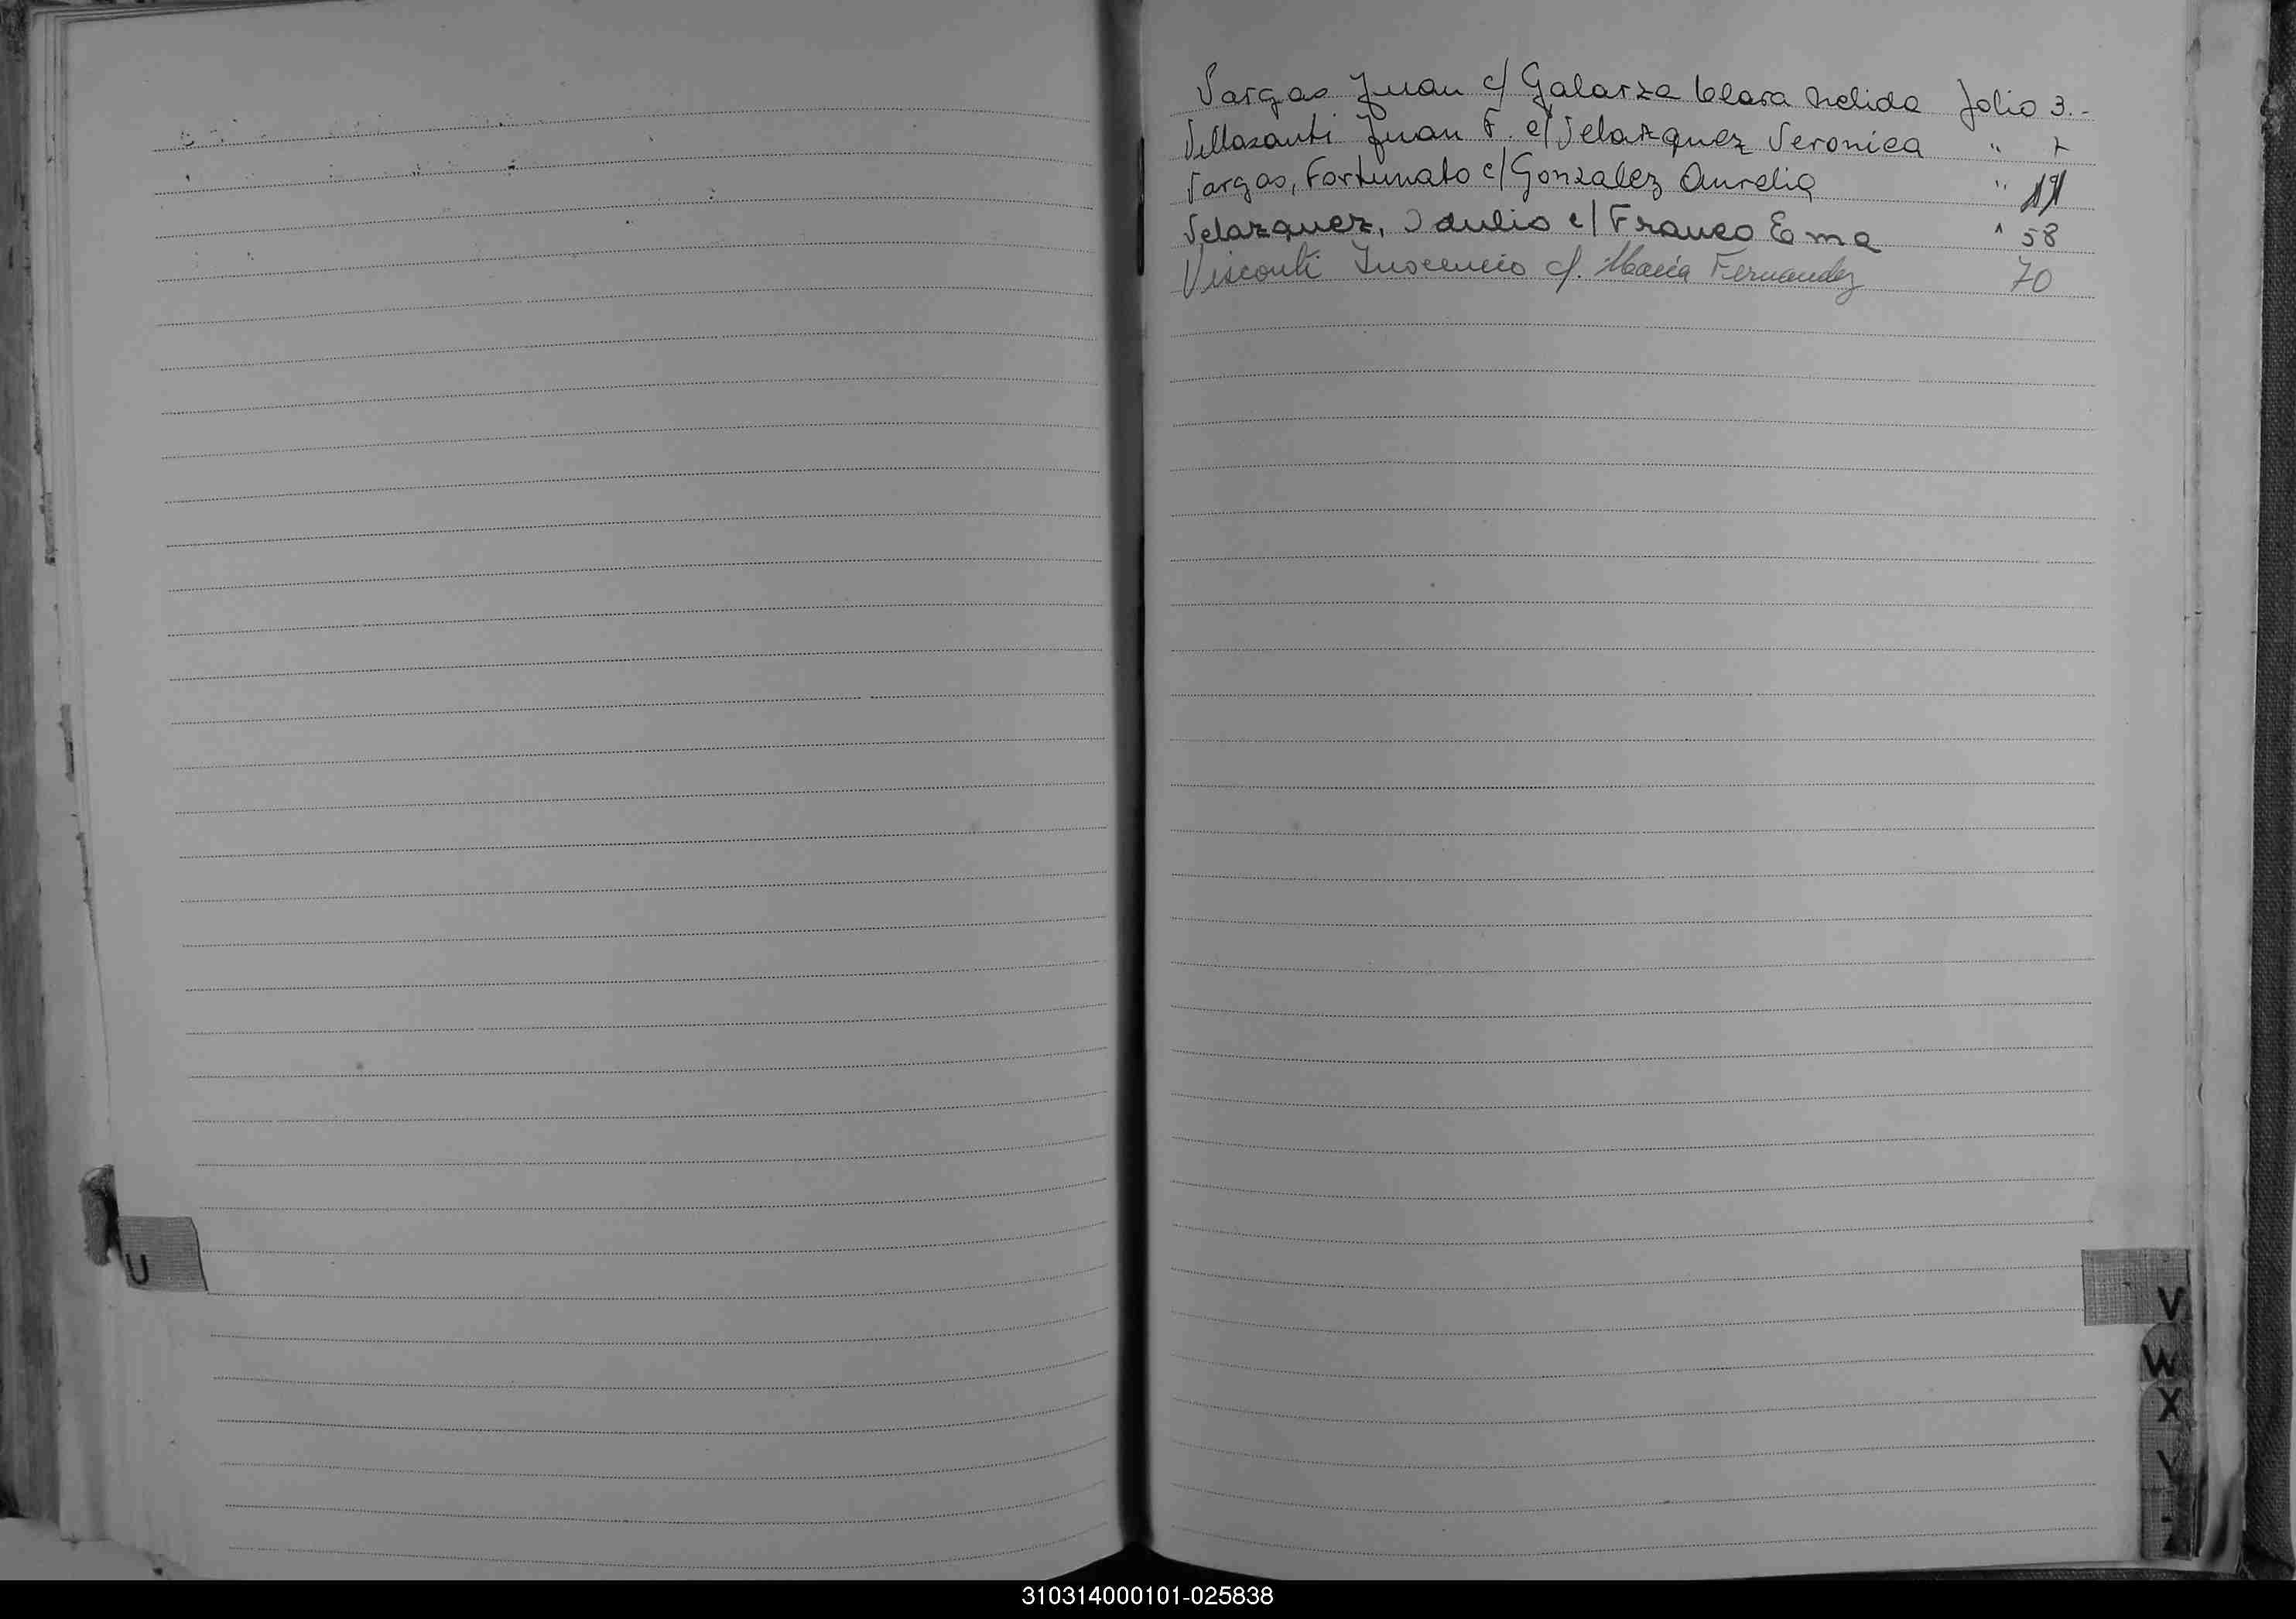 Vargas Juan c/ Galarza Clara Nelida Folio 3.-
Villasanti Juan F. c/ Velazquez Veronica " 7
Vargas, Fortunato c/ Gonzalez Aurelia "
Velazquez, Idulio c/ Franco Ema " 58
Visconti Inocencio c/. María Fernandez 70
U
V
W
X
Y
310314000101-025838